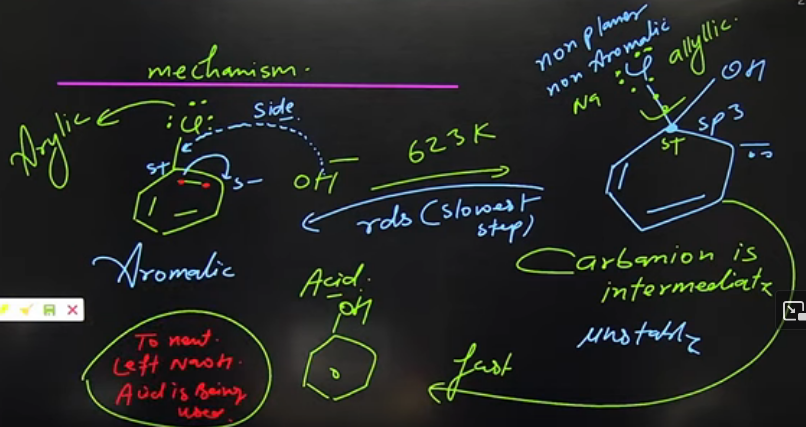 mechanism.
Arylic
:Cl:
Side
S+
S-
OH-
623K
rds (slowest
step)
Aromatic
non planer
non Aromatic
Na
:Cl:
allyllic.
OH
sp3
S+
Carbanion is
intermediate
unstable
fast
Acid.
OH
To neut.
Left NaOH.
Acid is Being
used.